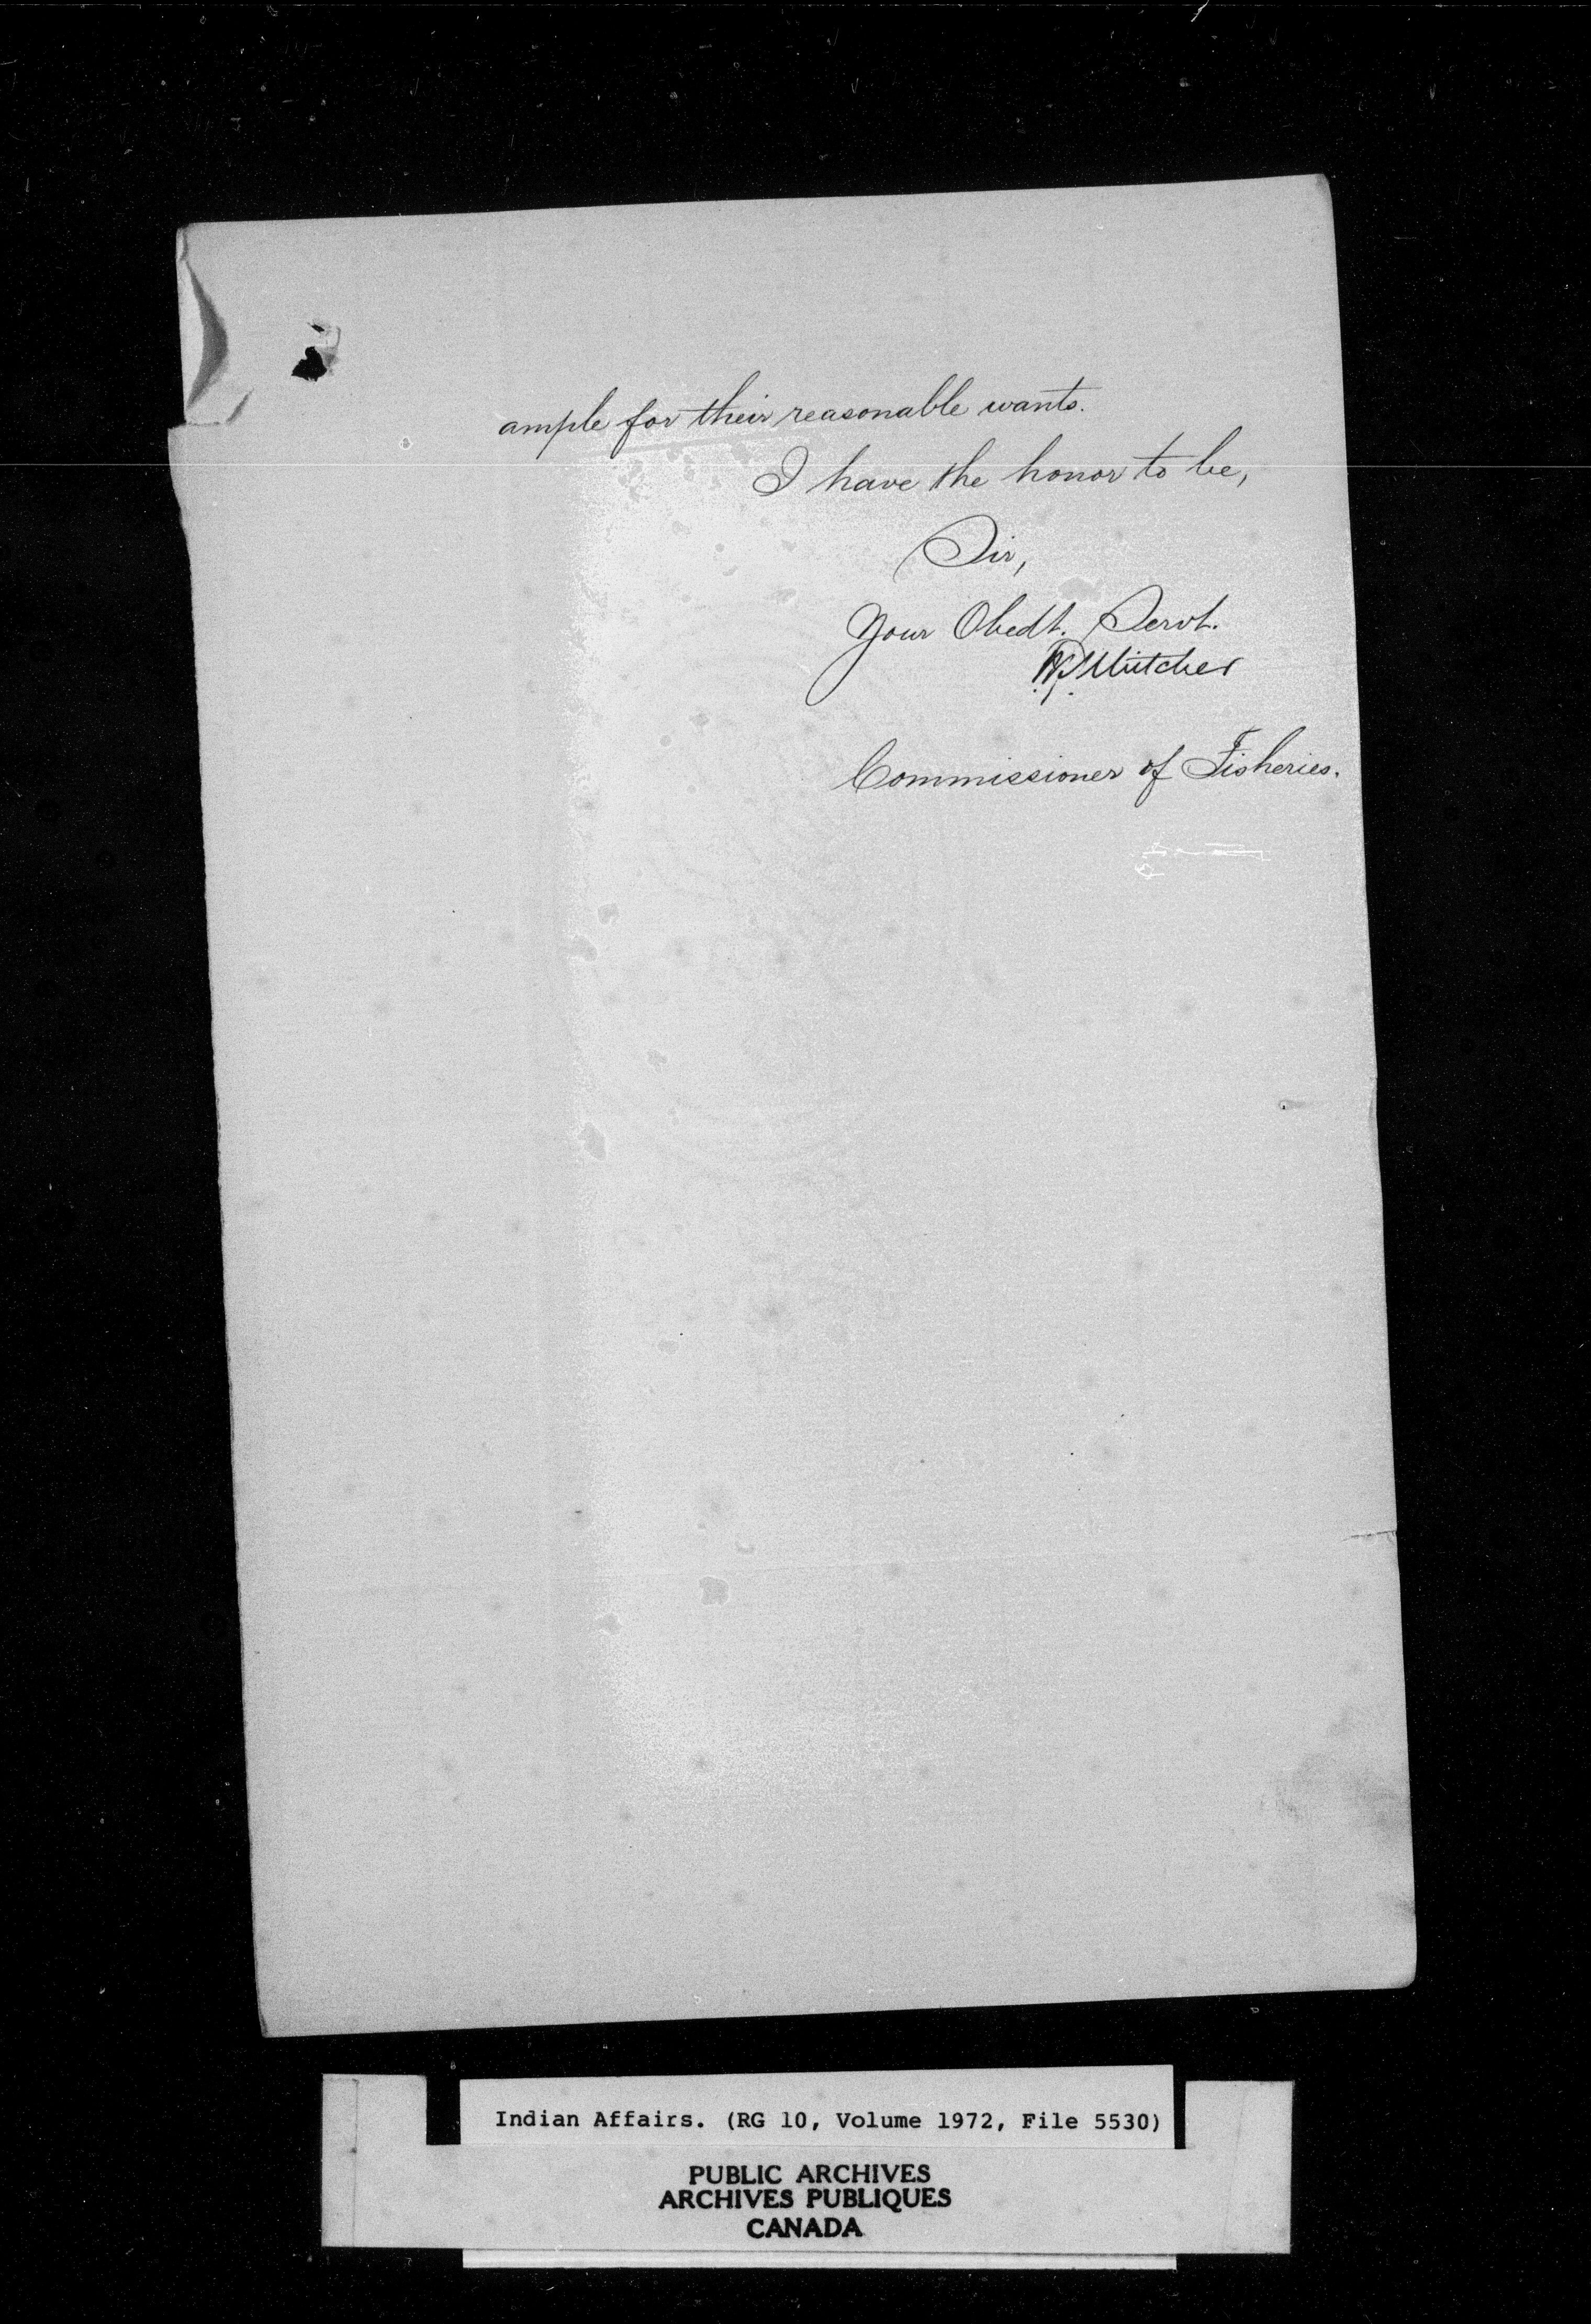 ample for their reasonable wants.
I have the honor to be,
Sir,
Your Obedt. Servt.
Commissioner of Fisheries.
Indian Affairs. (RG 10, Volume 1972, File 5530)
PUBLIC ARCHIVES
ARCHIVES PUBLIQUES
CANADA